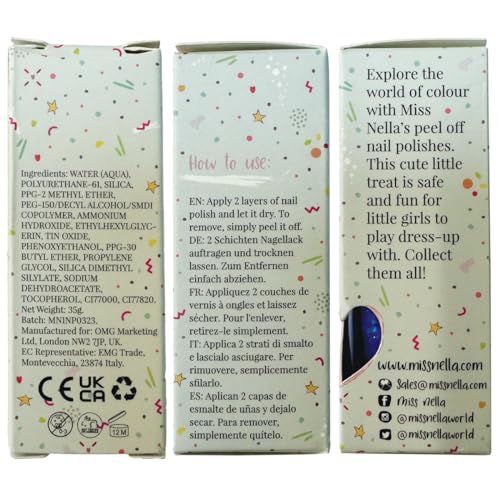 Ingredients: WATER (AQUA),
POLYURETHANE-61, SILICA,
PPG-2 METHYL ETHER,
PEG-150/DECYL ALCOHOL/SMDI
COPOLYMER, AMMONIUM
HYDROXIDE, ETHYLHEXYLGLYC-
ERIN, TIN OXIDE,
PHENOXYETHANOL, PPG-30
BUTYL ETHER, PROPYLENE
GLYCOL, SILICA DIMETHYL
SILYLATE, SODIUM
DEHYDROACETATE,
TOCOPHEROL, CI77000, CI77820.
Net Weight: 35g.
Batch: MNINP0323.
Manufactured for: OMG Marketing
Ltd, London NW2 7JP, UK.
EC Representative: EMG Trade,
Montevecchia, 23874 Italy.
CE UK
CA
0-3
12M
How to use:
EN: Apply 2 layers of nail
polish and let it dry. To
remove, simply peel it off.
DE: 2 Schichten Nagellack
auftragen und trocknen
lassen. Zum Entfernen
einfach abziehen.
FR: Appliquez 2 couches de
vernis à ongles et laissez
sécher. Pour l'enlever,
retirez-le simplement.
IT: Applica 2 strati di smalto
e lasciano asciugare. Per
rimuovere, semplicemente
sfilarlo.
ES: Aplican 2 capas de
esmalte de uñas y dejalo
secar. Para remover,
simplemente quítelo.
Explore the
world of colour
with Miss
Nella's peel off
nail polishes.
This cute little
treat is safe
and fun for
little girls to
play dress-up
with. Collect
them all!
www.missnella.com
Sales@missnella.com
Miss nella
@missnellaworld
@missnellaworld